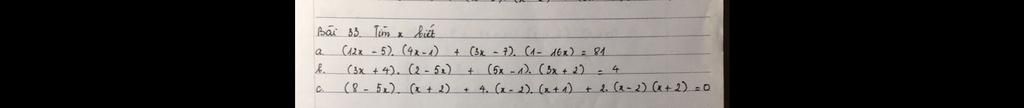 Bài 33. Tìm x biết
a. (12x - 5). (4x - 1) + (3x - 7). (1 - 16x) = 81
b. (3x + 4). (2 - 5x) + (5x - 1). (3x + 2) = 4
c. (8 - 5x). (x + 2) + 4. (x - 2). (x + 1) + 2. (x - 2) (x + 2) = 0